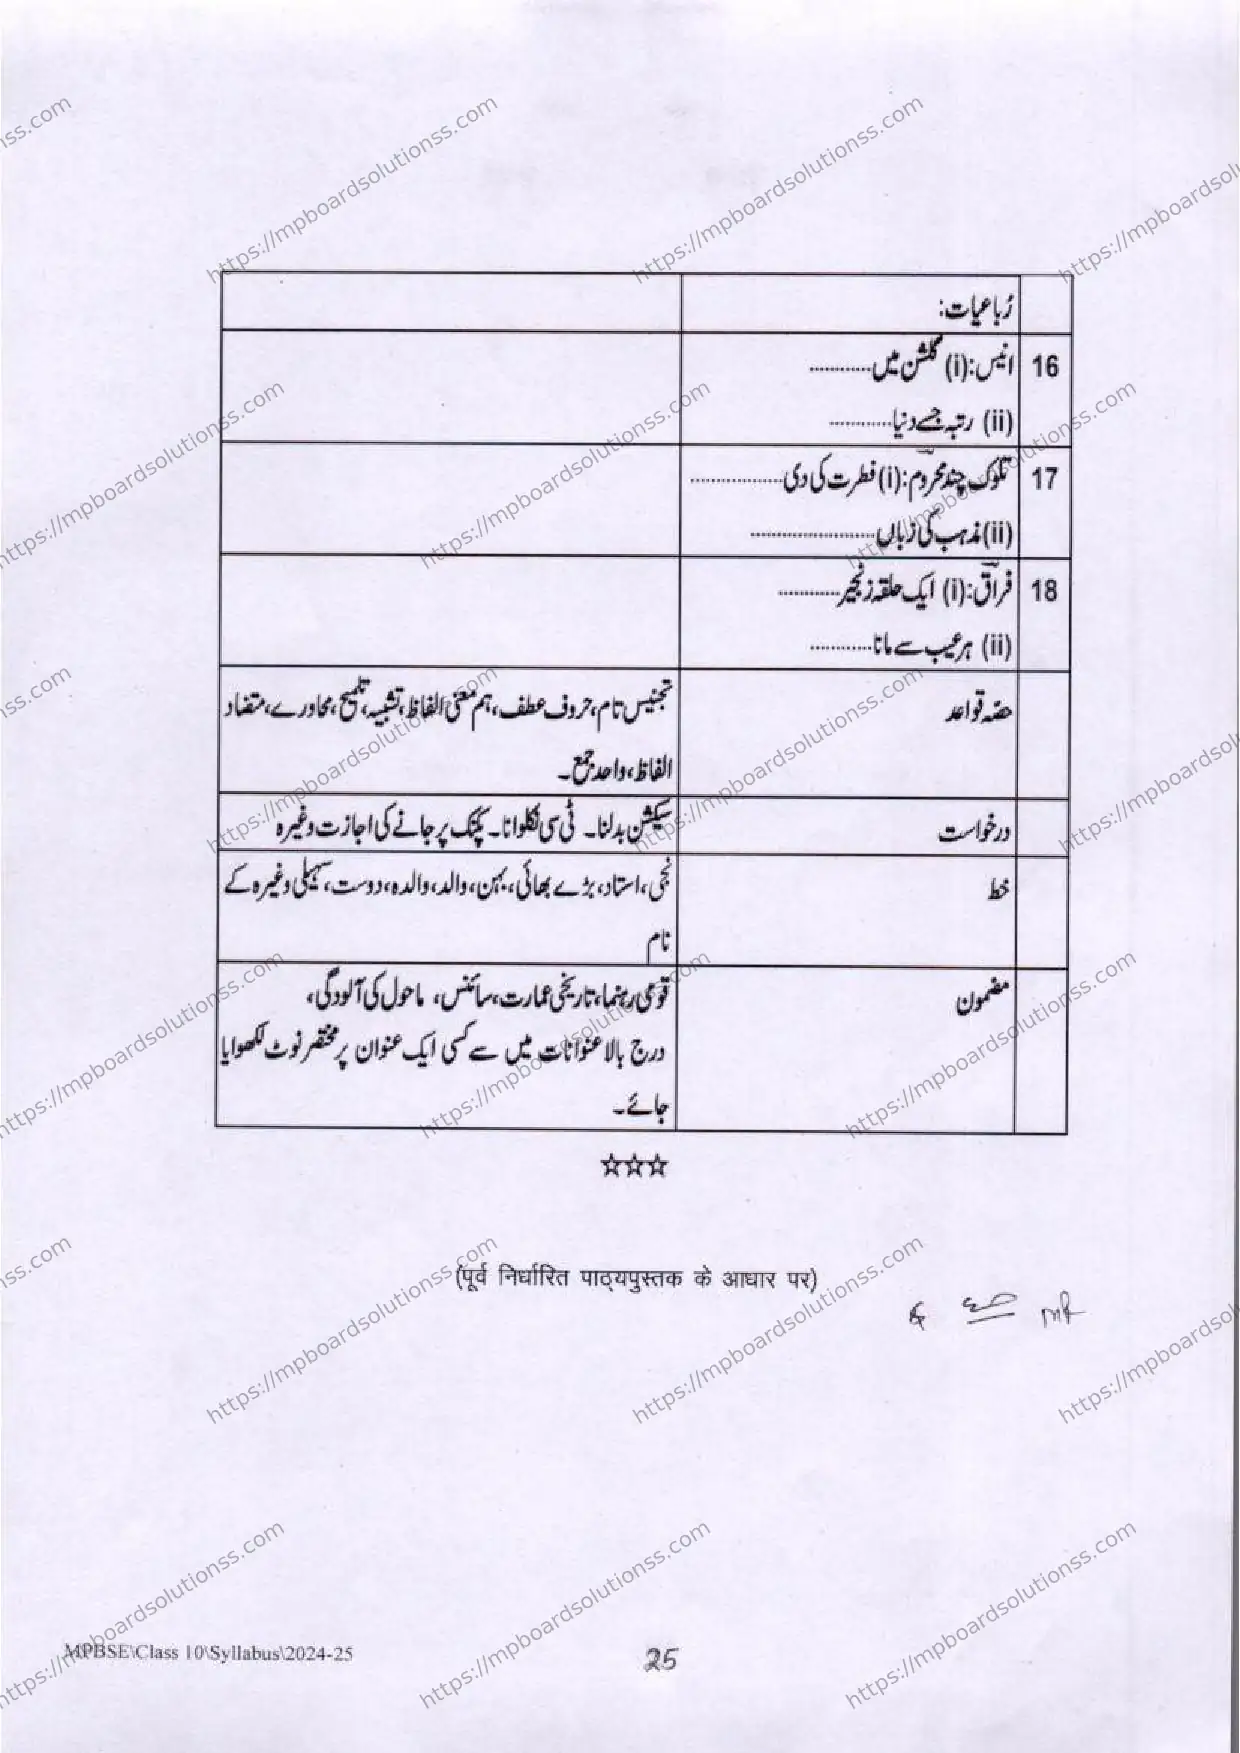 رُباعیات:
16 انیس: (i) گلشن میں............
(ii) رتبہ جسے دنیا............
17 تلوک چند محروم: (i) فطرت کی دی..................
(ii) مذہب کی زباں........................
18 فراق: (i) ایک حلقہ زنجیر............
(ii) ہر عیب سے مانا............
حصّہ قواعد
تجنیس تام، حروف عطف، ہم معنی الفاظ، تشبیہ، تلمیح، محاورے، متضاد
الفاظ، واحد جمع۔
درخواست
سیکشن بدلنا۔ ٹی سی نکلوانا۔ پکنک پر جانے کی اجازت وغیرہ
خط
نجی، استاد، بڑے بھائی، بہن، والد، والدہ، دوست، سہیلی وغیرہ کے
نام
مضمون
قومی رہنما، تاریخی عمارت، سائنس، ماحول کی آلودگی،
درج بالا عنوانات میں سے کسی ایک عنوان پر مختصر نوٹ لکھوایا
جائے۔
☆☆☆
(पूर्व निर्धारित पाठ्यपुस्तक के आधार पर)
MPBSE\Class 10\Syllabus\2024-25
25
https://mpboardsolutionss.com